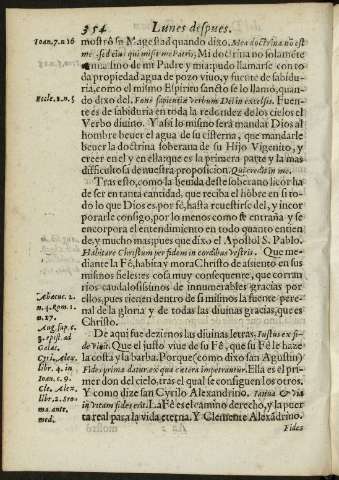 354 Lunes despues.
Ioan.7.n.16
mostrò su Magestad quando dixo. Mea doctrina no est
me sed eius qui misit me Patris, Mi doctrina no solamēte
es mia sino de mi Padre y mia: pudo llamarse con to
da propiedad agua de pozo viuo, y fuente de sabidu-
ria, como el mismo Espiritu sancto se lo llamò, quan-
Eccle.1.n.5
do dixo del. Fons sapientiæ verbum Dei in excelsis. Fuen-
te es de sabiduria en toda la redondez de los cielos el
Verbo diuino. Y assi lo mismo serà mandar Dios al
hombre beuer el agua de su cisterna, que mandarle
beuer la doctrina soberana de su Hijo Vigenito, y
creer en el y en ella: que es la primera parte y la mas
dificultosa de nuestra proposicion. Qui credit in me.
Tras esto, como la beuida deste soberano licor ha
de ser en tanta cantidad, que reciba el hōbre en si to-
do lo que Dios es, por fè, hasta reuestirse del, y incor
porarle consigo, por lo menos como se entraña y se
encorpora el entendimiento en todo quanto entien
de, y mucho mas; pues que dixo el Apostol S. Pablo.
Habitare Christum per fidem in cordibus vestris. Que me-
diante la Fè, habita y mora Christo de assiento en sus
mismos fieles: es cosa muy consequente, que corran
rios caudalosissimos de innumerables gracias por
Abacuc. 2.
ellos, pues tienen dentro de si mismos la fuente pere-
n.4. Rom. 1.
nal de la gloria y de todas las diuinas gracias, que es
n.17.
Christo.
Aug. sup. c.
De aqui fue dezirnos las diuinas letras. Iustus ex fi-
3. epist. ad
de viuit. Que el justo viue de su Fè, que su Fè le haze
Galat.
la costa y la barba. Porque (como dixo san Agustin)
Cyri. Alex.
Fides prima datur, ex qua cætera impetrantur. Ella es el primer
libr. 4. in
don del cielo, tras el qual se consiguen los otros.
Ioan. c. 9.
Y como dize san Cyrilo Alexandrino. Ianua & via
Cle. Alex.
in vitam fides est. La Fè es el camino derecho, y la puer
libr. 2. Stro-
ta real para la vida eterna. Y Clemente Alexādrino.
ma. ante
med.
Fides